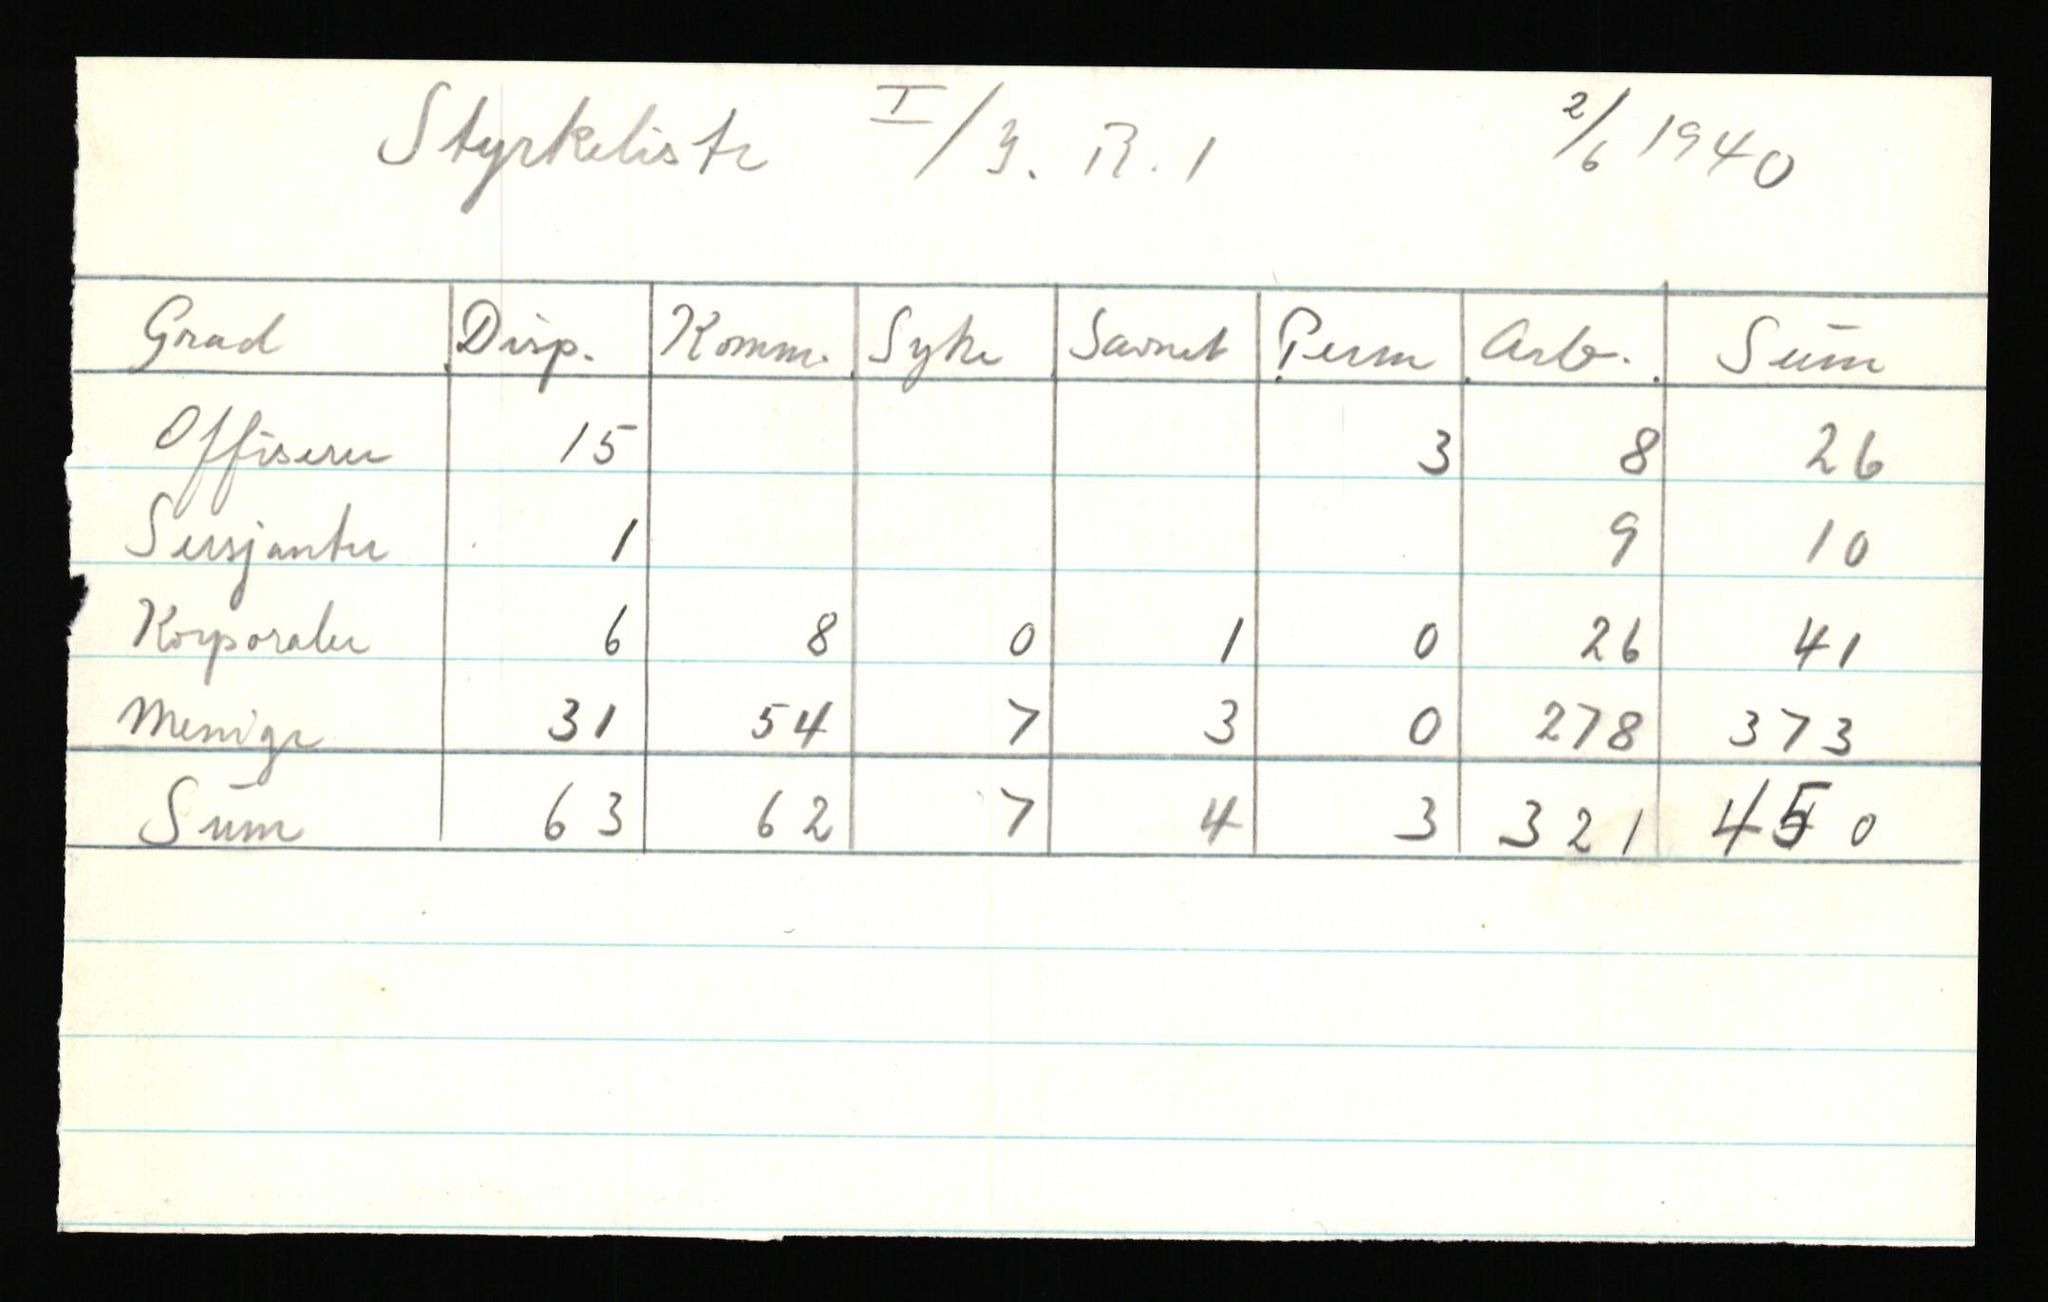 Styrkeliste I/J. R. 1 2/6 1940
Grad Disp. Komm. Syke Savnet Perm. Arb. Sum
Offiserer 15 3 8 26
Sersjanter 1 9 10
Korporaler 6 8 0 1 0 26 41
Menige 31 54 7 3 0 278 373
Sum 63 62 7 4 3 321 450